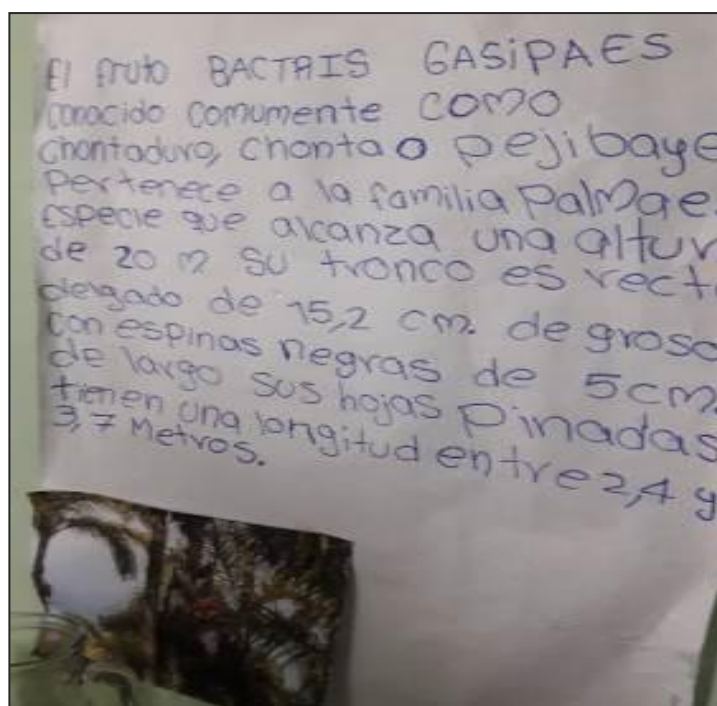 El fruto BACTRIS GASiPAES
conocido comumente como
chontaduro, chonta o pejibaye
Pertenece a la familia Palmae.
especie que alcanza una altur
de 20 m su tronco es rect
delgado de 15,2 cm. de groso
con espinas negras de 5cm.
de largo sus hojas pinadas
tienen una longitud entre 2,4 y
3,7 Metros.